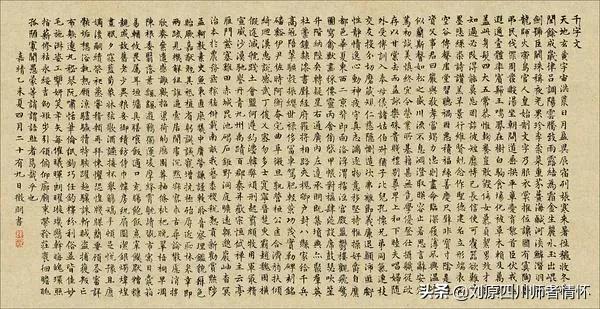 千字文
天地玄黃宇宙洪荒日月盈昃辰宿列張寒來暑往秋收冬藏
閏餘成歲律呂調陽雲騰致雨露結為霜金生麗水玉出崑岡
劍號巨闕珠稱夜光果珍李柰菜重芥薑海鹹河淡鱗潛羽翔
龍師火帝鳥官人皇始制文字乃服衣裳推位讓國有虞陶唐
弔民伐罪周發殷湯坐朝問道垂拱平章愛育黎首臣伏戎羌
遐邇壹體率賓歸王鳴鳳在樹白駒食場化被草木賴及萬方
蓋此身髮四大五常恭惟鞠養豈敢毀傷女慕貞潔男效才良
知過必改得能莫忘罔談彼短靡恃己長信使可覆器欲難量
墨悲絲染詩讚羔羊景行維賢克念作聖德建名立形端表正
空谷傳聲虛堂習聽禍因惡積福緣善慶尺璧非寶寸陰是競
資父事君曰嚴與敬孝當竭力忠則盡命臨深履薄夙興溫凊
似蘭斯馨如松之盛川流不息淵澄取映容止若思言辭安定
篤初誠美慎終宜令榮業所基籍甚無竟學優登仕攝職從政
存以甘棠去而益詠樂殊貴賤禮別尊卑上和下睦夫唱婦隨
外受傅訓入奉母儀諸姑伯叔猶子比兒孔懷兄弟同氣連枝
交友投分切磨箴規仁慈隱惻造次弗離節義廉退顛沛匪虧
性靜情逸心動神疲守真志滿逐物意移堅持雅操好爵自縻
都邑華夏東西二京背邙面洛浮渭據涇宮殿盤鬱樓觀飛驚
圖寫禽獸畫彩仙靈丙舍傍啟甲帳對楹肆筵設席鼓瑟吹笙
升階納陛弁轉疑星右通廣內左達承明既集墳典亦聚群英
杜稿鍾隸漆書壁經府羅將相路俠槐卿戶封八縣家給千兵
高冠陪輦驅轂振纓世祿侈富車駕肥輕策功茂實勒碑刻銘
磻溪伊尹佐時阿衡奄宅曲阜微旦孰營桓公匡合濟弱扶傾
綺迴漢惠說感武丁俊乂密勿多士寔寧晉楚更霸趙魏困橫
假途滅虢踐土會盟何遵約法韓弊煩刑起翦頗牧用軍最精
宣威沙漠馳譽丹青九州禹跡百郡秦并嶽宗恆岱禪主云亭
雁門紫塞雞田赤城昆池碣石鉅野洞庭曠遠綿邈巖岫杳冥
治本於農務茲稼穡俶載南畝我藝黍稷稅熟貢新勸賞黜陟
孟軻敦素史魚秉直庶幾中庸勞謙謹敕聆音察理鑑貌辨色
貽厥嘉猷勉其祗植省躬譏誡寵增抗極殆辱近恥林皋幸即
兩疏見機解組誰逼索居閒處沉默寂寥求古尋論散慮逍遙
欣奏累遣慼謝歡招渠荷的歷園莽抽條枇杷晚翠梧桐早凋
陳根委翳落葉飄颻遊鵾獨運凌摩絳霄耽讀翫市寓目囊箱
易輶攸畏屬耳垣牆具膳餐飯適口充腸飽飫烹宰飢厭糟糠
親戚故舊老少異糧妾御績紡侍巾帷房紈扇圓潔銀燭煒煌
晝眠夕寐藍筍象床絃歌酒讌接杯舉觴矯手頓足悅豫且康
嫡後嗣續祭祀烝嘗稽顙再拜悚懼恐惶牋牒簡要顧答審詳
骸垢想浴執熱願涼驢騾犢特駭躍超驤誅斬賊盜捕獲叛亡
布射遼丸嵇琴阮嘯恬筆倫紙鈞巧任釣釋紛利俗並皆佳妙
毛施淑姿工顰妍笑年矢每催曦暉朗曜璇璣懸斡晦魄環照
指薪修祜永綏吉劭矩步引領俯仰廊廟束帶矜莊徘徊瞻眺
孤陋寡聞愚蒙等誚謂語助者焉哉乎也
嘉靖乙未夏四月二十有九日徵明書
头条 @刘原四川师者情怀